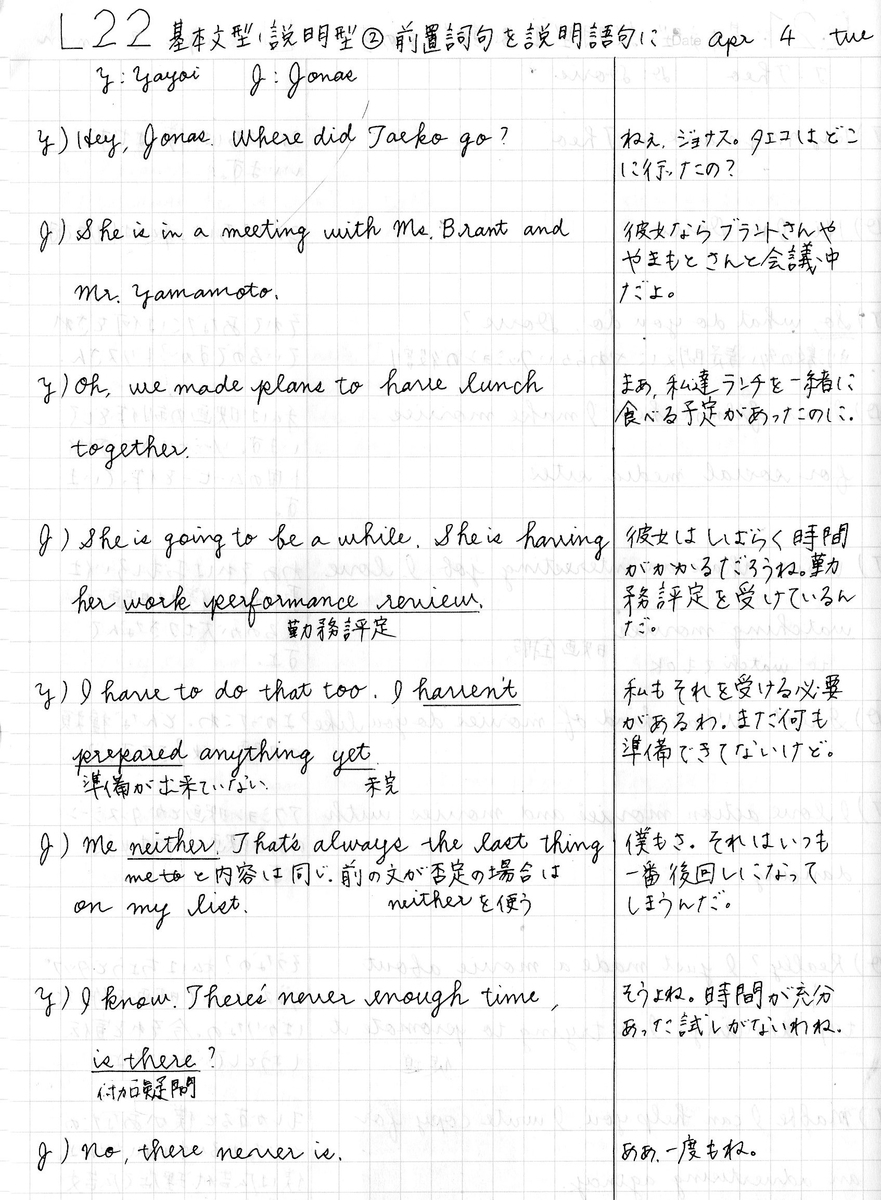 L22 基本文型、説明型② 前置詞句を説明語句に apr 4 tue
Y: Yayoi J: Jonas
Y) Hey, Jonas. Where did Taeko go? ねぇ、ジョナス。タエコはどこ
に行ったの？
J) She is in a meeting with Ms. Brant and 彼女ならブラントさんや
やまもとさんと会議中
Mr. Yamamoto. だよ。
Y) Oh, we made plans to have lunch まあ、私達ランチを一緒に
together. 食べる予定があったのに.
J) She is going to be a while. She is having 彼女はしばらく時間
がかかるだろうね。勤
her work performance review. 務評定を受けているん
勤務評定 だ。
Y) I have to do that too. I haven't 私もそれを受ける必要
があるわ. まだ何も
prepared anything yet. 準備できてないけど。
準備が出来ていない 未完
J) Me neither. That's always the last thing 僕もさ。それはいつも
me to と内容は同じ. 前の文が否定の場合は 一番後回しになって
on my list. neitherを使う しまうんだ。
Y) I know. There's never enough time, そうよね。時間が充分
あった試しがないわね.
is there?
付加疑問
J) No, there never is. ああ、一度もね。